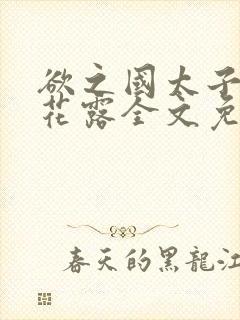 欲之國太子
花露全文免
春天的黑龍江